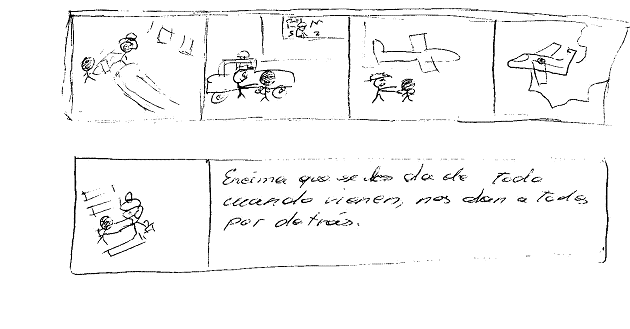 Encima que se les da de todo
cuando vienen, nos dan a todos
por detrás.